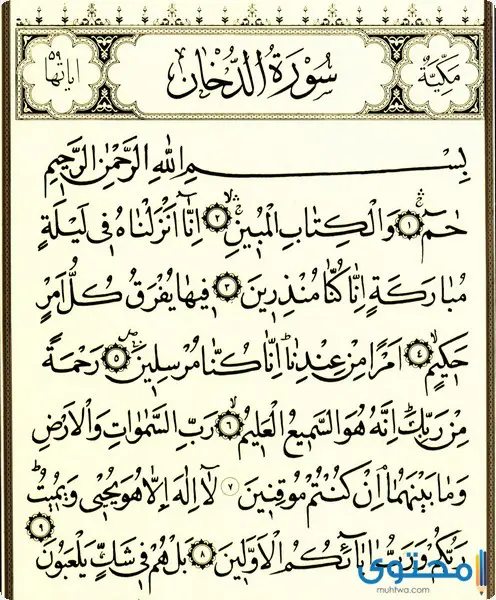 مكية
سورة الدخان
آياتها ٥٩
بِسْمِ اللهِ الرَّحْمٰنِ الرَّحِيمِ
حٰمٓ ﴿١﴾ وَالْكِتَابِ الْمُبِينِ ﴿٢﴾ اِنَّٓا اَنْزَلْنَاهُ فِى لَيْلَةٍ
مُبَارَكَةٍ اِنَّا كُنَّا مُنْذِرِينَ ﴿٣﴾ فِيهَا يُفْرَقُ كُلُّ اَمْرٍ
حَكِيمٍ ﴿٤﴾ اَمْرًا مِنْ عِنْدِنَا اِنَّا كُنَّا مُرْسِلِينَ ﴿٥﴾ رَحْمَةً
مِنْ رَبِّكَ اِنَّهُ هُوَ السَّمِيعُ الْعَلِيمُ ﴿٦﴾ رَبِّ السَّمٰوَاتِ وَالْاَرْضِ
وَمَا بَيْنَهُمَا اِنْ كُنْتُمْ مُوقِنِينَ ﴿٧﴾ لَٓا اِلٰهَ اِلَّا هُوَ يُحْيِى وَيُمِيتُ
رَبُّكُمْ وَرَبُّ اٰبَٓائِكُمُ الْاَوَّلِينَ ﴿٨﴾ بَلْ هُمْ فِى شَكٍّ يَلْعَبُونَ ﴿٩﴾
محتوى
muhtwa.com